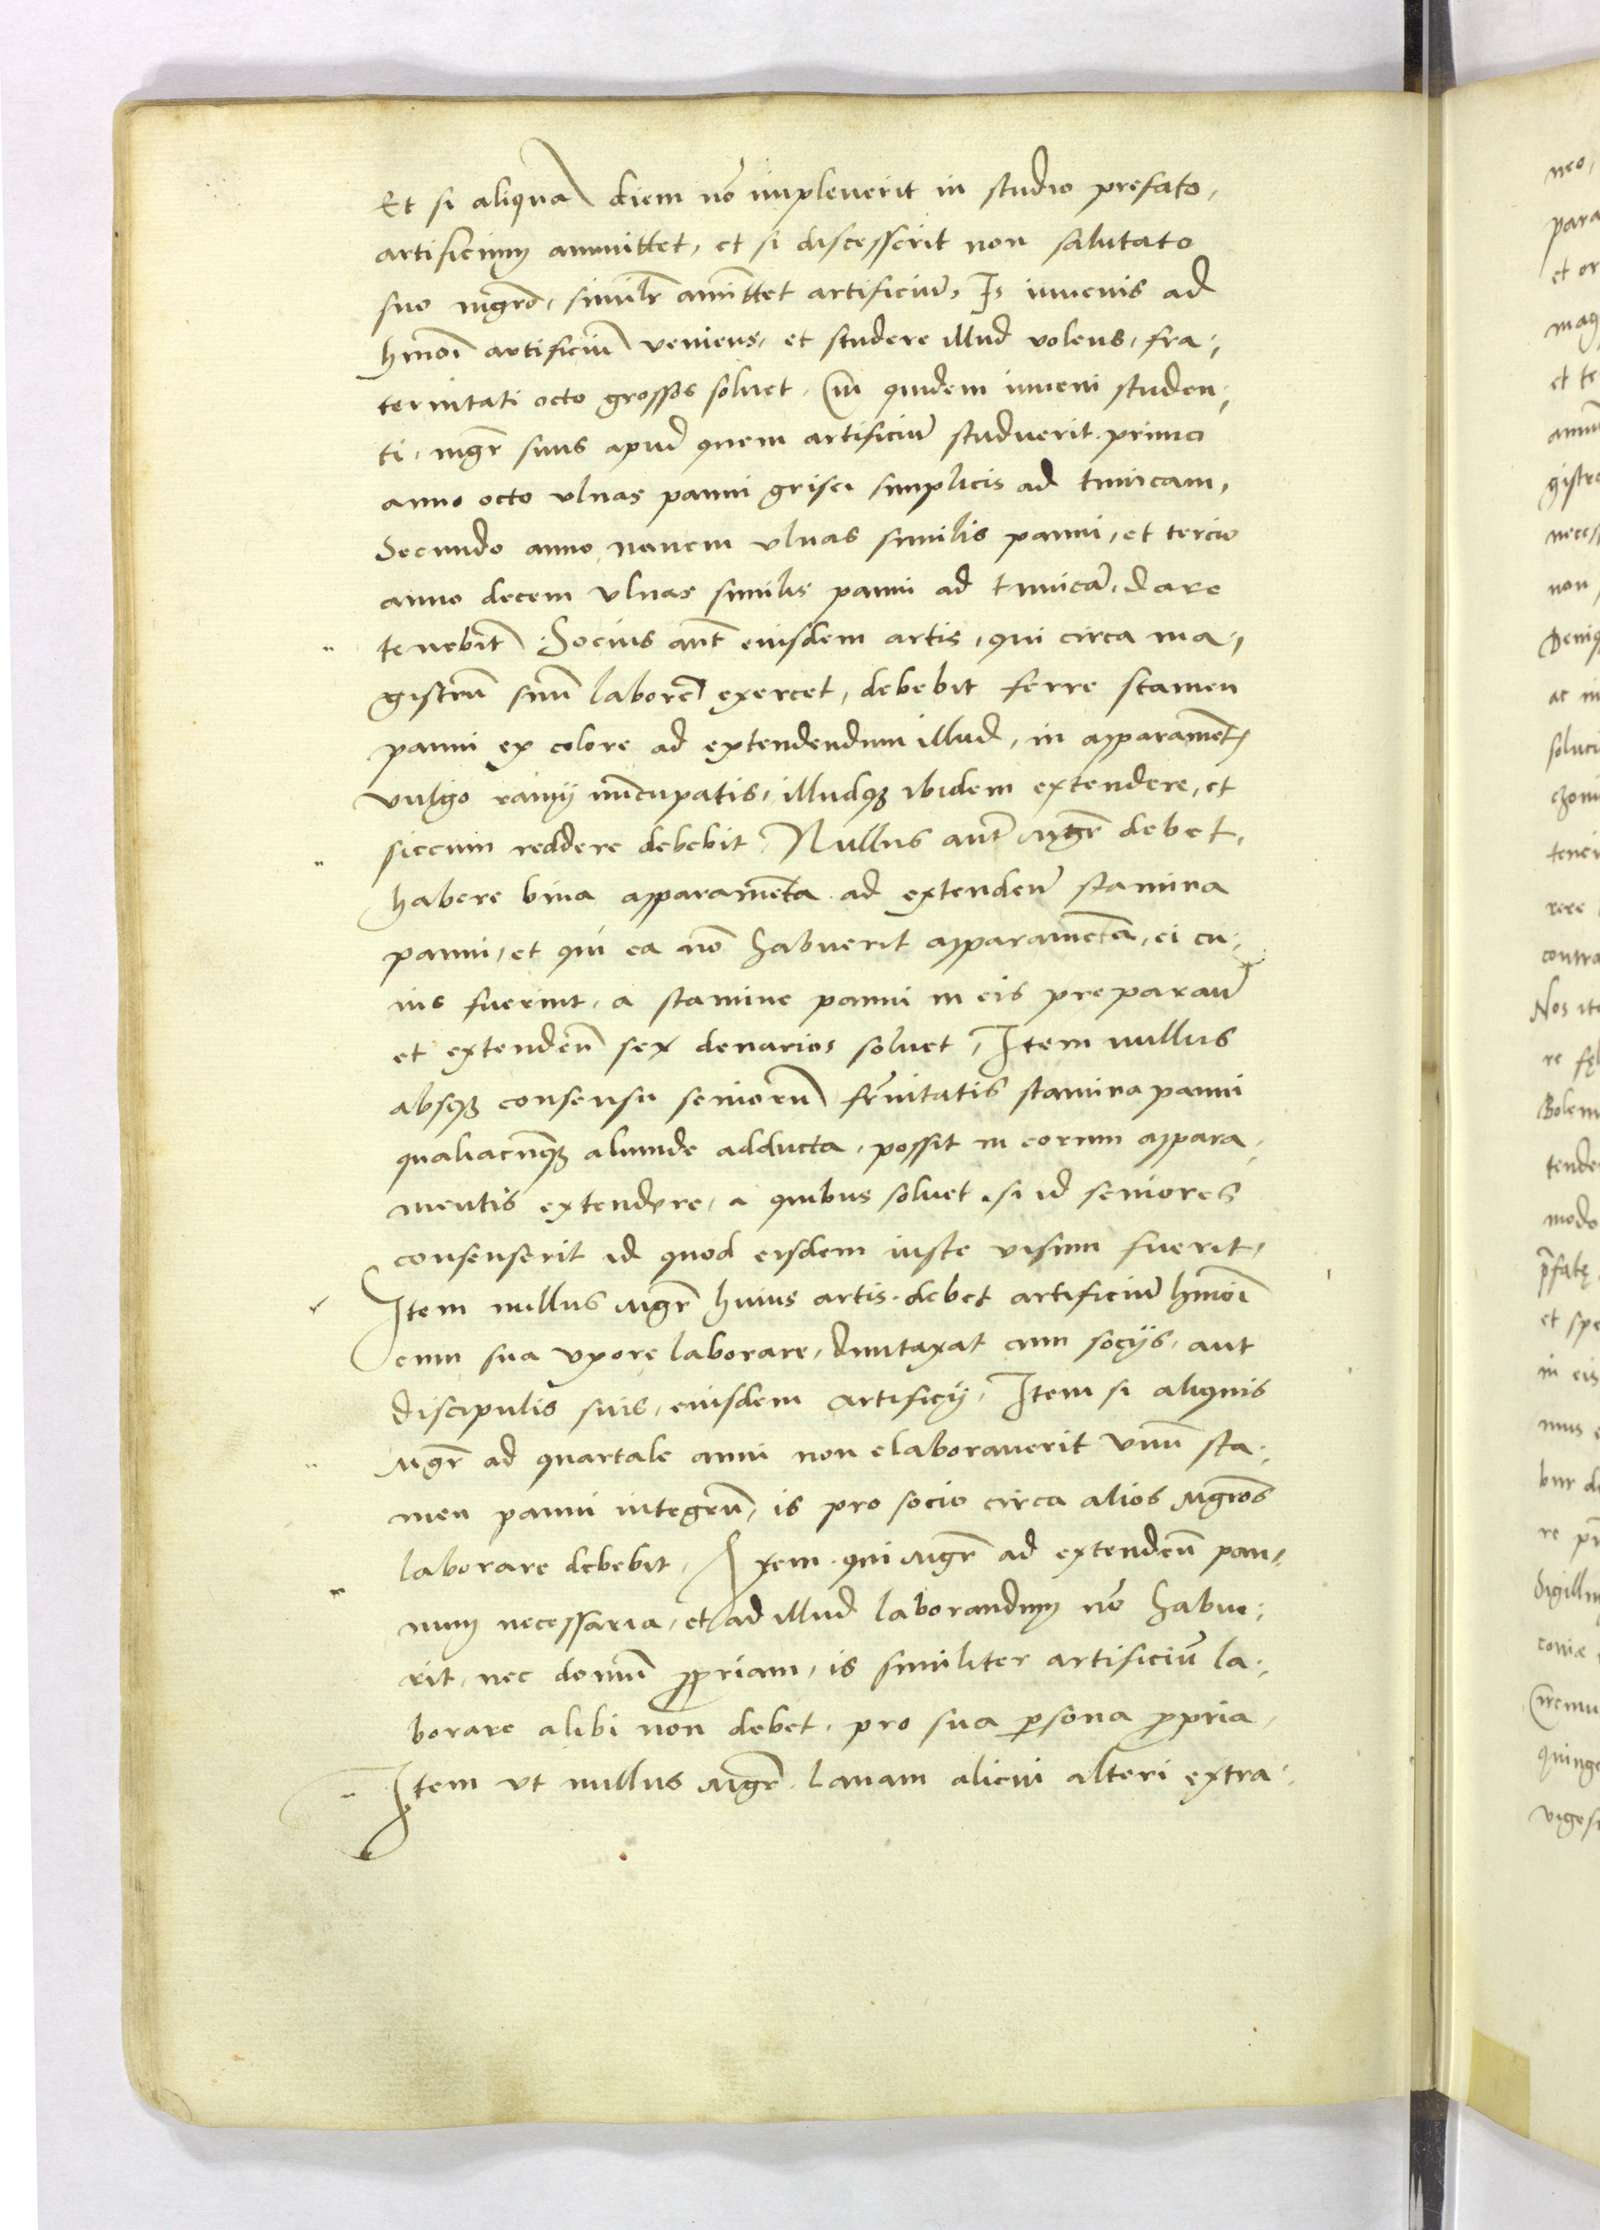 Et si aliquã diem nõ impleuerit in studio prefato,
artificium ammittet, et si discesserit non salutato
suo mgrõ, similr̃ amittet artificiũ, Is iuuenis ad
hmõi artificiũ veniens, et studere illud volens, fra-
ternitati octo grossos soluet. Cui quidem iuueni studen-
ti, mgr̃ suus apud quem artificiũ studuerit primo
anno octo vlnas panni grisei simplicis ad tunicam,
Secundo anno, nouem vlnas similis panni, et tercio
anno decem vlnas similis panni ad tunicã, dare
tenebit̃. Socius aut̃ eiusdem artis, qui circa ma-
gistrũ suũ laborẽ exercet, debebit ferre stamen
panni ex colore ad extendendum illud, in apparament̃
vulgo ramy nũcupatis, illudq3 ibidem extendere, et
siccum reddere debebit. Nullus aut̃ Mgr̃ debet,
habere bina apparamẽta ad extendeñ stamina
panni, et qui ea nõ habuerit apparamẽta, ei cu-
ius fuerint, a stamine panni in eis preparañ
et extendeñ sex denarios soluet, Item nullus
absq3 consensu seniorũ fr̃nitatis stamina panni
qualiacũq3 aliunde adducta, possit in eorum appara-
mentis extendere, a quibus soluet, si id seniores
consenserit id quod eisdem iuste visum fuerit,
Item nullus Mgr̃ huius artis debet artificiũ hmõi
cum sua vxore laborare, duntaxat cum socijs, aut
discipulis suis, eiusdem artificij, Item si aliquis
Mgr̃ ad quartale anni non elaborauerit vnũ sta-
men panni integrũ, is pro socio circa alios Mgrõs
laborare debebit, Item qui Mgr̃ ad extendeñ pan-
num necessaria, et ad illud laborandum nõ habue-
rit, nec domũ propriam, is similiter artificiũ la-
borare alibi non debet, pro sua persona propria,
Item vt nullus Mgr̃ lanam alicui alteri extra-